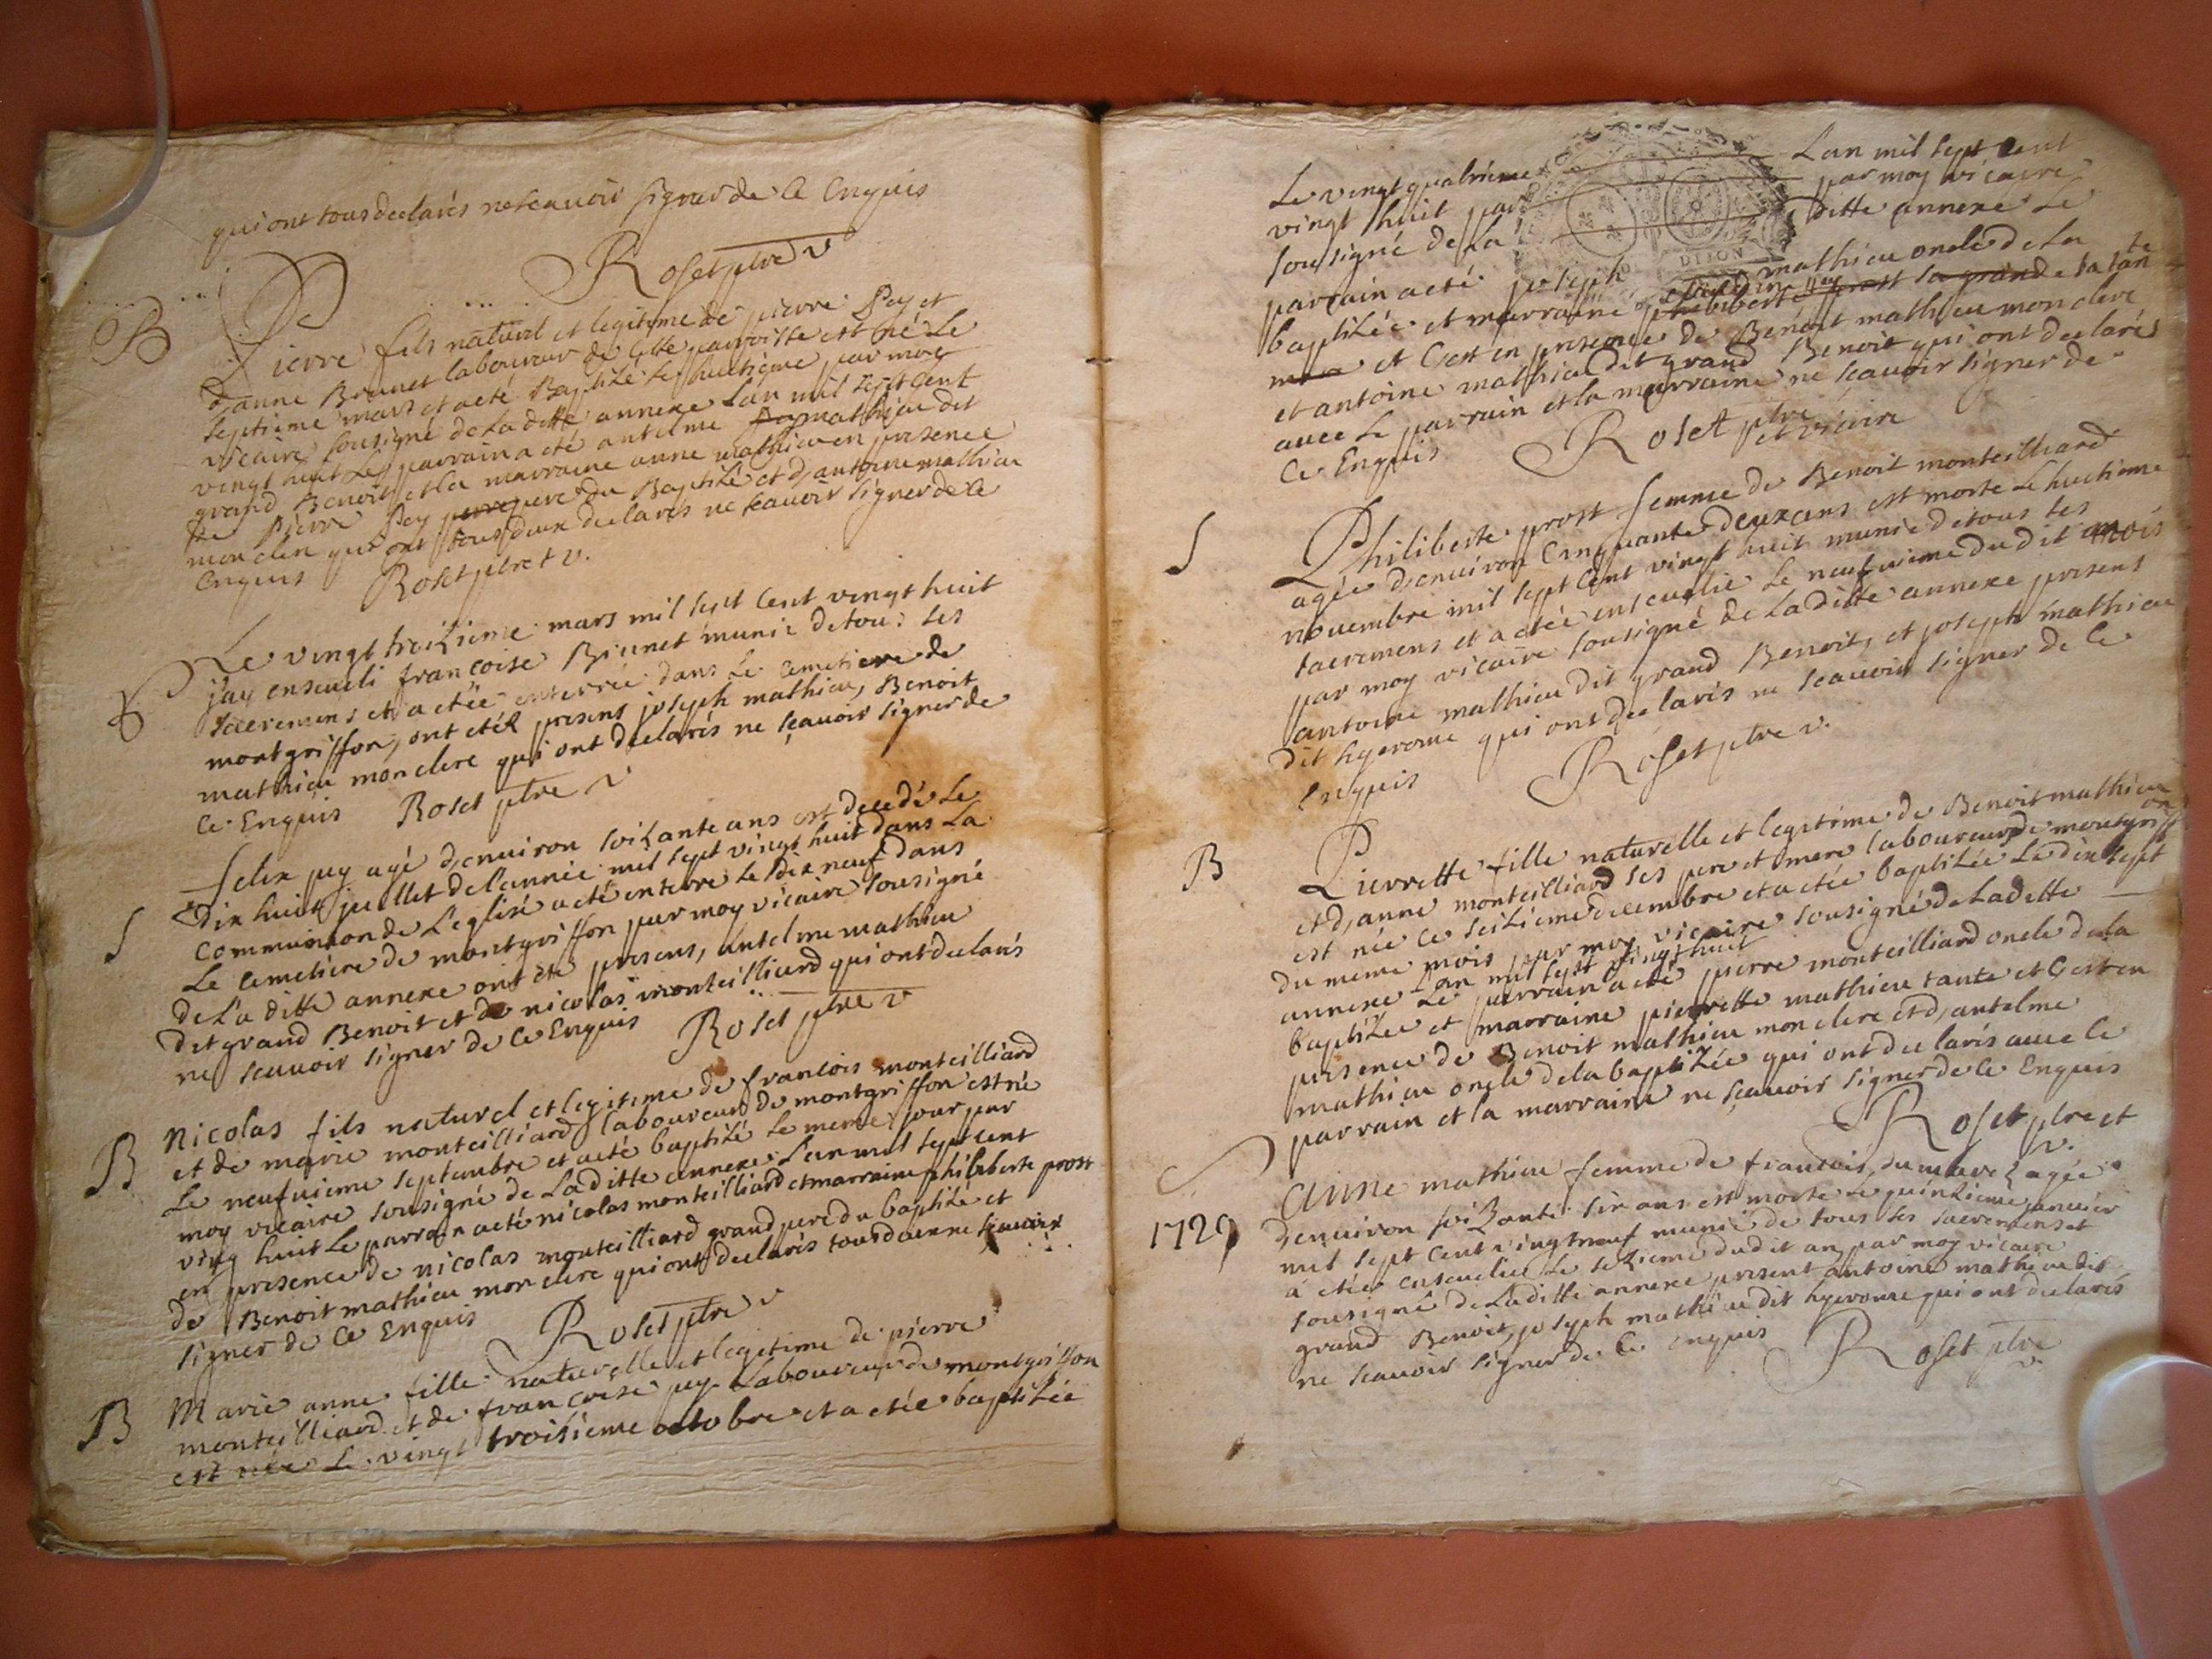 qui ont tous declarés ne scauoir signer de ce Enquis
Roset ptre v
B
Pierre fils naturel et legitime de pierre Pey et
d,anne Brunet laboureur de cette parroisse est né le
septieme mars et acté Baptisé le huitieme par moy
vicaire sousigné de La ditte annexe Lan mil sept Cent
vingt huit Le parrain a eté antelme mathieu dit
grand Benoit et la marraine anne mathieu en presence
de Pierre Pey pere du Baptisé et d,antoine mathieu
mon clerc qui ont tous deux declarés ne scauoir signer de ce
Enquis Roset ptre et v.
Le vingt troisieme mars mil sept Cent vingt huit
jay enseueli francoise Brunet munie de tous ses
sacremens et a etée enterrée dans Le Cemetiere de
montgriffon, ont etéz presens joseph mathieu, Benoit
mathieu mon clerc qui ont declarés ne sçauoir signer de
Ce Enquis Roset ptre v
S
felix pey agé d,enuiron soixante ans est decedé Le
dix huit juillet de l'année mil sept vingt huit dans La
Communion de L'eglise a eté enterré Le dix neuf dans
Le Cemetiere de montgriffon par moy vicaire sousigné
de La ditte annexe ont eté presens, antelme mathieu
dit grand Benoit et de nicolas monteilliard qui ont declarés
ne scauoir signer de Ce Enquis Roset ptre v
B
Nicolas fils naturel et legitime de francois monteilliard
et de marie monteilliard laboureurs de montgriffon est né
Le neufuieme septembre et acté baptisé Le meme jour par
moy vicaire sousigné de Laditte annexe Lan mil sept cent
ving huit Le parrain acté nicolas monteilliard et marraine philiberte prost
en presence de nicolas monteilliard grand pere du baptisé et
de Benoit mathieu mon clerc qui ont declarés tous deux ne scauoir
signer de Ce Enquis Roset ptre v
B
Marie anne fille naturelle et legitime de pierre
monteilliard et de francoise pey Laboureurs de montgriffon
est née Le vingt troisieme octobre et a etée baptisée
Le vingt quatrieme Lan mil sept Cent
vingt huit par par moy vicaire
sousigné de La ditte annexe Le
parrain acté joseph mathieu oncle de La
DIJON
baptisée et marraine philiberte prost sa grande sa tan te
et C'est en presence de Benoit mathieu mon clerc
et antoine mathieu dit grand Benoit qui ont declarés
auec Le parrain et la marraine ne scauoir signer de
Ce Enquis Roset ptre
et vicaire
S
Philiberte prost femme de Benoit monteilliard
agée d,enuiron Cinquante deux ans est morte Le huitieme
nouembre mil sept Cent vingt huit munie de tous ses
sacremens et a etée enseuelie Le neufuieme du dit mois
par moy vicaire sousigné de La ditte annexe presens
antoine mathieu dit grand Benoit, et joseph mathieu
dit hyerome qui ont declarés ne scauoir signer de Ce
Enquis Roset ptre v.
B
Pierrette fille naturelle et legitime de Benoit mathieu
et d,anne monteilliard ses pere et mere laboureurs de montgriff on
est née Ce seizieme decembre et a etée baptisée Le dix sept
du meme mois par moy vicaire sousigné de Laditte
Lan mil sept vingt huit
annexe Le parrain a eté pierre monteilliard oncle de la
baptisée et marraine pierrette mathieu tante et C'est en
presence de Benoit mathieu mon clerc et d,antelme
mathieu oncle de la baptisée qui ont declarés auec le
parrain et la marraine ne sçauoir signer de Ce Enquis
Roset ptre et
v.
S
1729
Anne mathieu femme de francois dumarez agée
d,enuiron soixante six ans est morte Le quinzieme januier
mil sept Cent vingt neuf munie de tous ses sacremens et
a etée enseuelie Le sezieme dudit an par moy vicaire
sousigné de Laditte annexe present antoine mathieu dit
grand Benoit, joseph mathieu dit hyerome qui ont declarés
ne scauoir signer de Ce Enquis Roset ptre
v